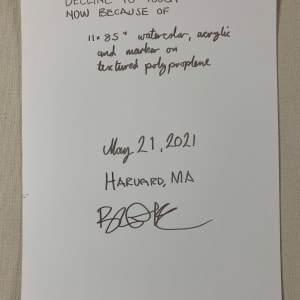 DECLINE TO TOUCH
NOW BECAUSE OF
11x85" watercolor, acrylic
and marker on
textured polyproplene
May 21, 2021
HARVARD, MA